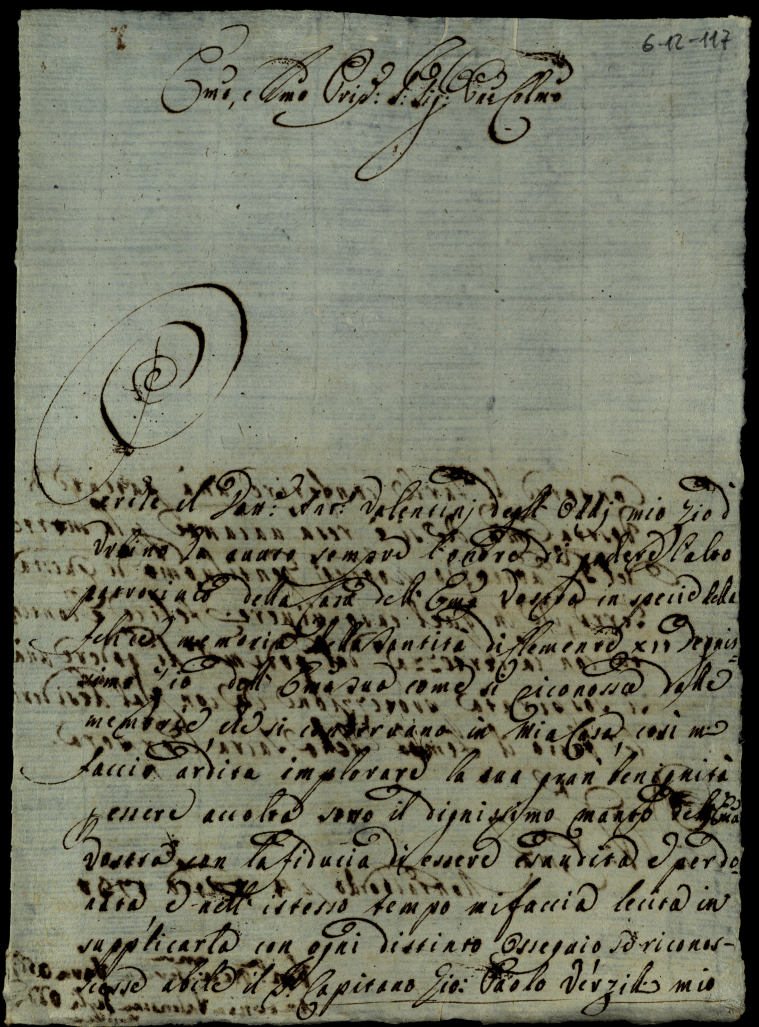 6-12-117
Emo, e Rmo Prīp: e Sig: Pne Colmo
Perche il Dan: Ant: Valentinj degli Oddj mio Zio d
Urbino ha auuto sempre l'onore di godere l'alto
patrocinio della Casa dell' Emza Vostra in specie della
felice memoria della Santità di Clemente XII Degnis-
simo Zio dell' Emza sua come si riconosce dalle
memorie che si conservano in Mia Casa, così mi
faccio ardita implorare la sua gran benignità
p essere accolta sotto il dignissimo manto dell' Emza
Vostra con la fiducia di essere esaudita e perdo-
nata e nell' istesso tempo mi faccia lecita in
supplicarla con ogni distinto ossequio se ricones-
cesse abile il Sr Capitano Gio: Paolo Verzilij mio